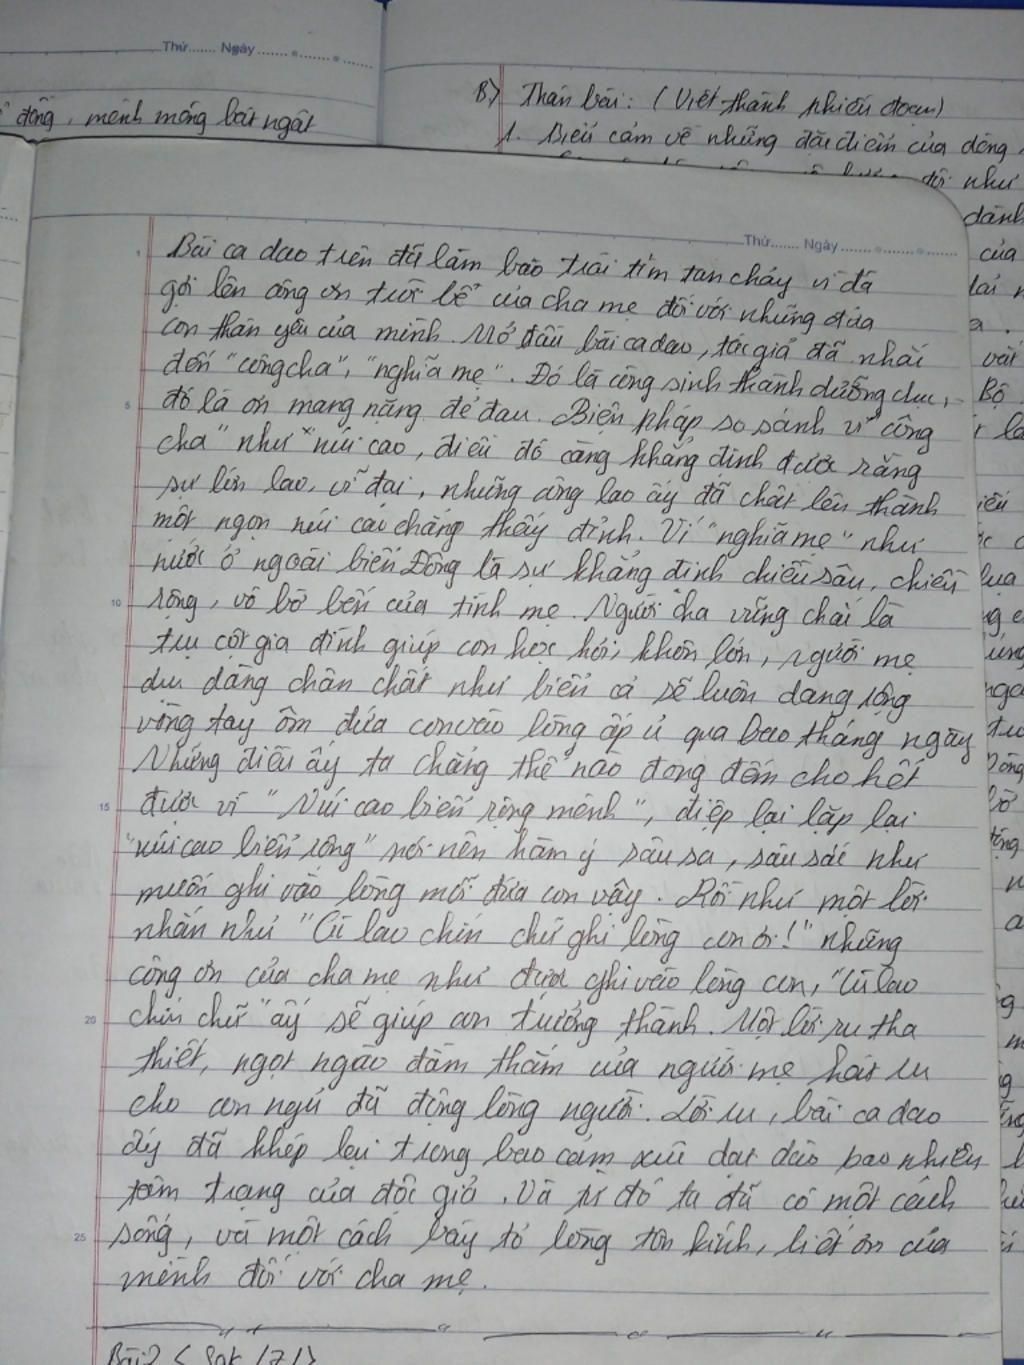 Thứ....... Ngày.......
đồng, mênh mông bát ngát
B) Thân bài: (Viết thành nhiều đoạn)
1. Biểu cảm về những đặc điểm của dòng
như
Thứ....... Ngày.......
Bài ca dao trên đã làm bao trái tim tan chảy vì đã
gợi lên công ơn trời bể của cha mẹ đối với những đứa
con thân yêu của mình. Mở đầu bài ca dao, tác giả đã nhắc
đến "công cha", "nghĩa mẹ". Đó là công sinh thành dưỡng dục,
5 đó là ơn mang nặng đẻ đau. Biện pháp so sánh ví "công
cha" như "núi cao, điều đó càng khẳng định được rằng
sự lớn lao, vĩ đại, những công lao ấy đã chất lên thành
một ngọn núi cao chẳng thấy đỉnh. Ví "nghĩa mẹ" như
nước ở ngoài biển Đông là sự khẳng định chiều sâu, chiều
10 rộng, vô bờ bến của tình mẹ. Người cha vững chãi là
trụ cột gia đình giúp con học hỏi, khôn lớn, người mẹ
dịu dàng chân chất như biển cả sẽ luôn dang rộng
vòng tay ôm đứa con vào lòng ấp ủ qua bao tháng ngày
Những điều ấy ta chẳng thể nào đong đếm cho hết
15 được vì "Núi cao biển rộng mênh", điệp lại lặp lại
"núi cao biển rộng" nói nên hàm ý sâu sa, sâu sắc như
muốn ghi vào lòng mỗi đứa con vậy. Rồi như một lời
nhắn như "Cù lao chín chữ ghi lòng con ơi!" những
công ơn của cha mẹ như được ghi vào lòng con, "Cù lao
20 chín chữ" ấy sẽ giúp con trưởng thành. Một lời ru tha
thiết, ngọt ngào đằm thắm của người mẹ hát ru
cho con ngủ đã động lòng người. Lời ru, bài ca dao
ấy đã khép lại trong bao cảm xúc dạt dào bao nhiêu
tâm trạng của độc giả. Và từ đó ta đã có một cách
25 sống, và một cách bày tỏ lòng tôn kính, biết ơn của
mình đối với cha mẹ.
Bài 2 (Sgk /71)